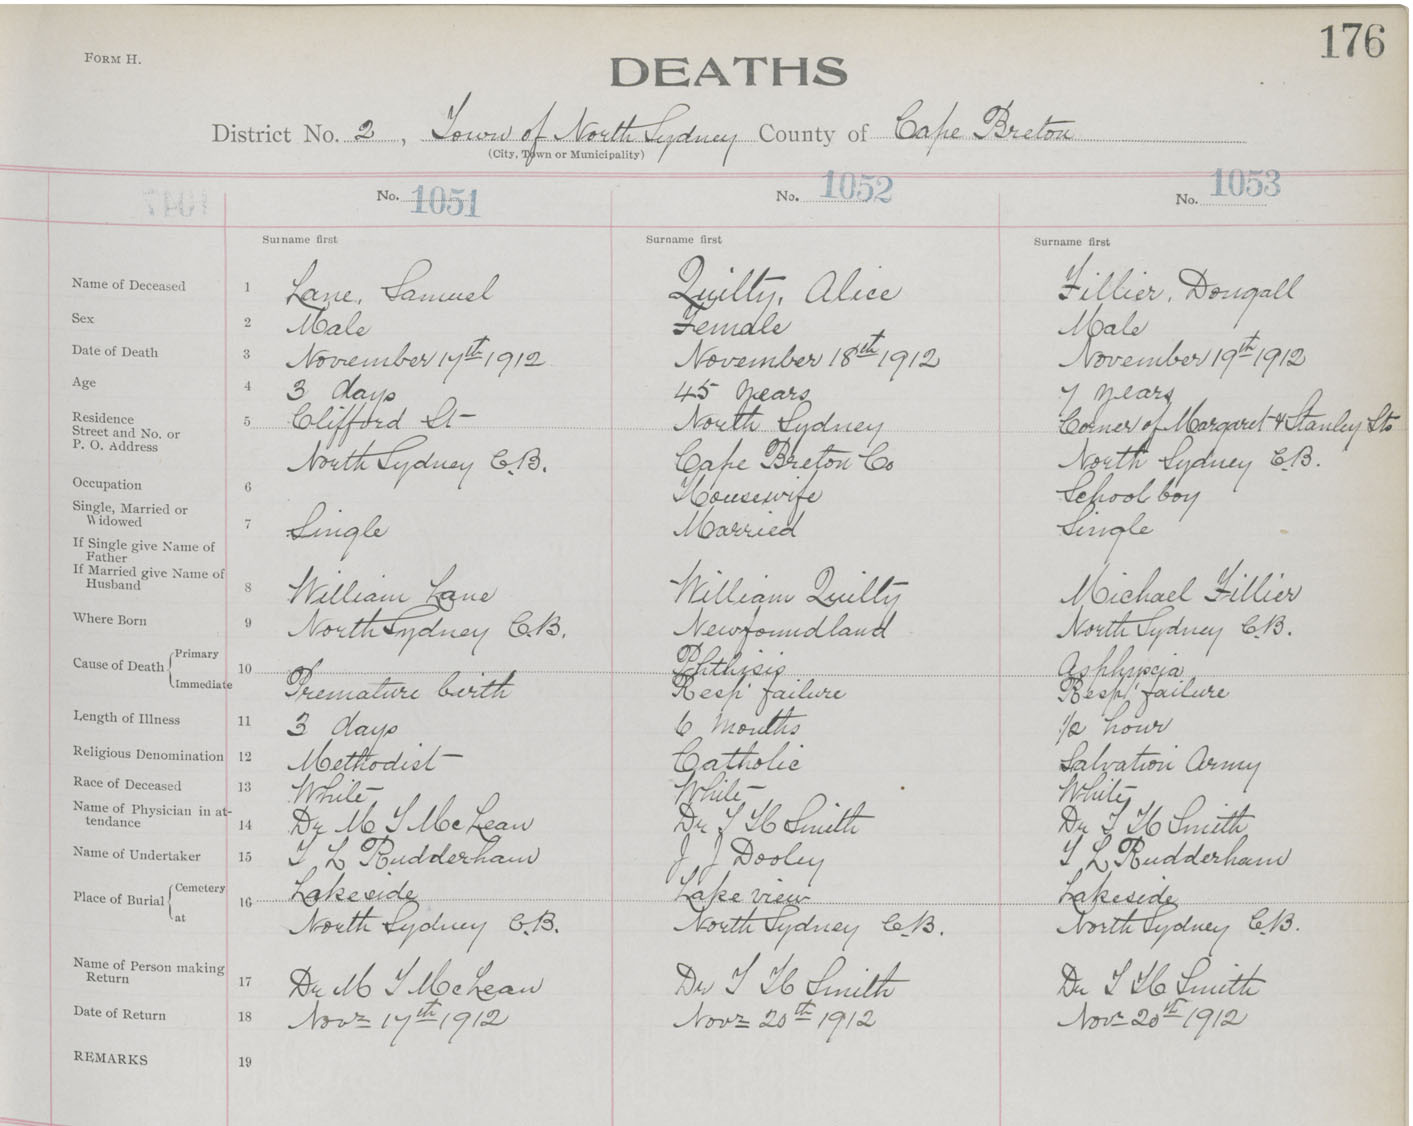 176
FORM H.
DEATHS
District No. 2, Town of North Sydney County of Cape Breton
(City, Town or Municipality)
No. 1051 No. 1052 No. 1053
Surname first Surname first Surname first
Name of Deceased 1 Lane, Samuel Quilty, Alice Fillier, Dougall
Sex 2 Male Female Male
Date of Death 3 November 17th 1912 November 18th 1912 November 19th 1912
Age 4 3 days 45 years 7 years
Residence
Street and No. or 5 Clifford St North Sydney Corner of Margaret & Stanley Sts
P. O. Address
North Sydney C.B. Cape Breton Co North Sydney C.B.
Occupation 6 Housewife School boy
Single, Married or
Widowed 7 Single Married Single
If Single give Name of
Father
If Married give Name of
Husband 8 William Lane William Quilty Michael Fillier
Where Born 9 North Sydney C.B. Newfoundland North Sydney C.B.
Cause of Death Primary 10 Phthisis Asphyxia
Immediate Premature birth Resp failure Resp failure
Length of Illness 11 3 days 6 months 1/2 hour
Religious Denomination 12 Methodist Catholic Salvation Army
Race of Deceased 13 White White White
Name of Physician in at-
tendance 14 Dr M T McLean Dr T H Smith Dr T H Smith
Name of Undertaker 15 T L Rudderham J J Dooley T L Rudderham
Place of Burial Cemetery 16 Lakeside Lake view Lakeside
at North Sydney C.B. North Sydney C.B. North Sydney C.B.
Name of Person making
Return 17 Dr M T McLean Dr T H Smith Dr T H Smith
Date of Return 18 Novr 17th 1912 Novr 20th 1912 Novr 20th 1912
REMARKS 19